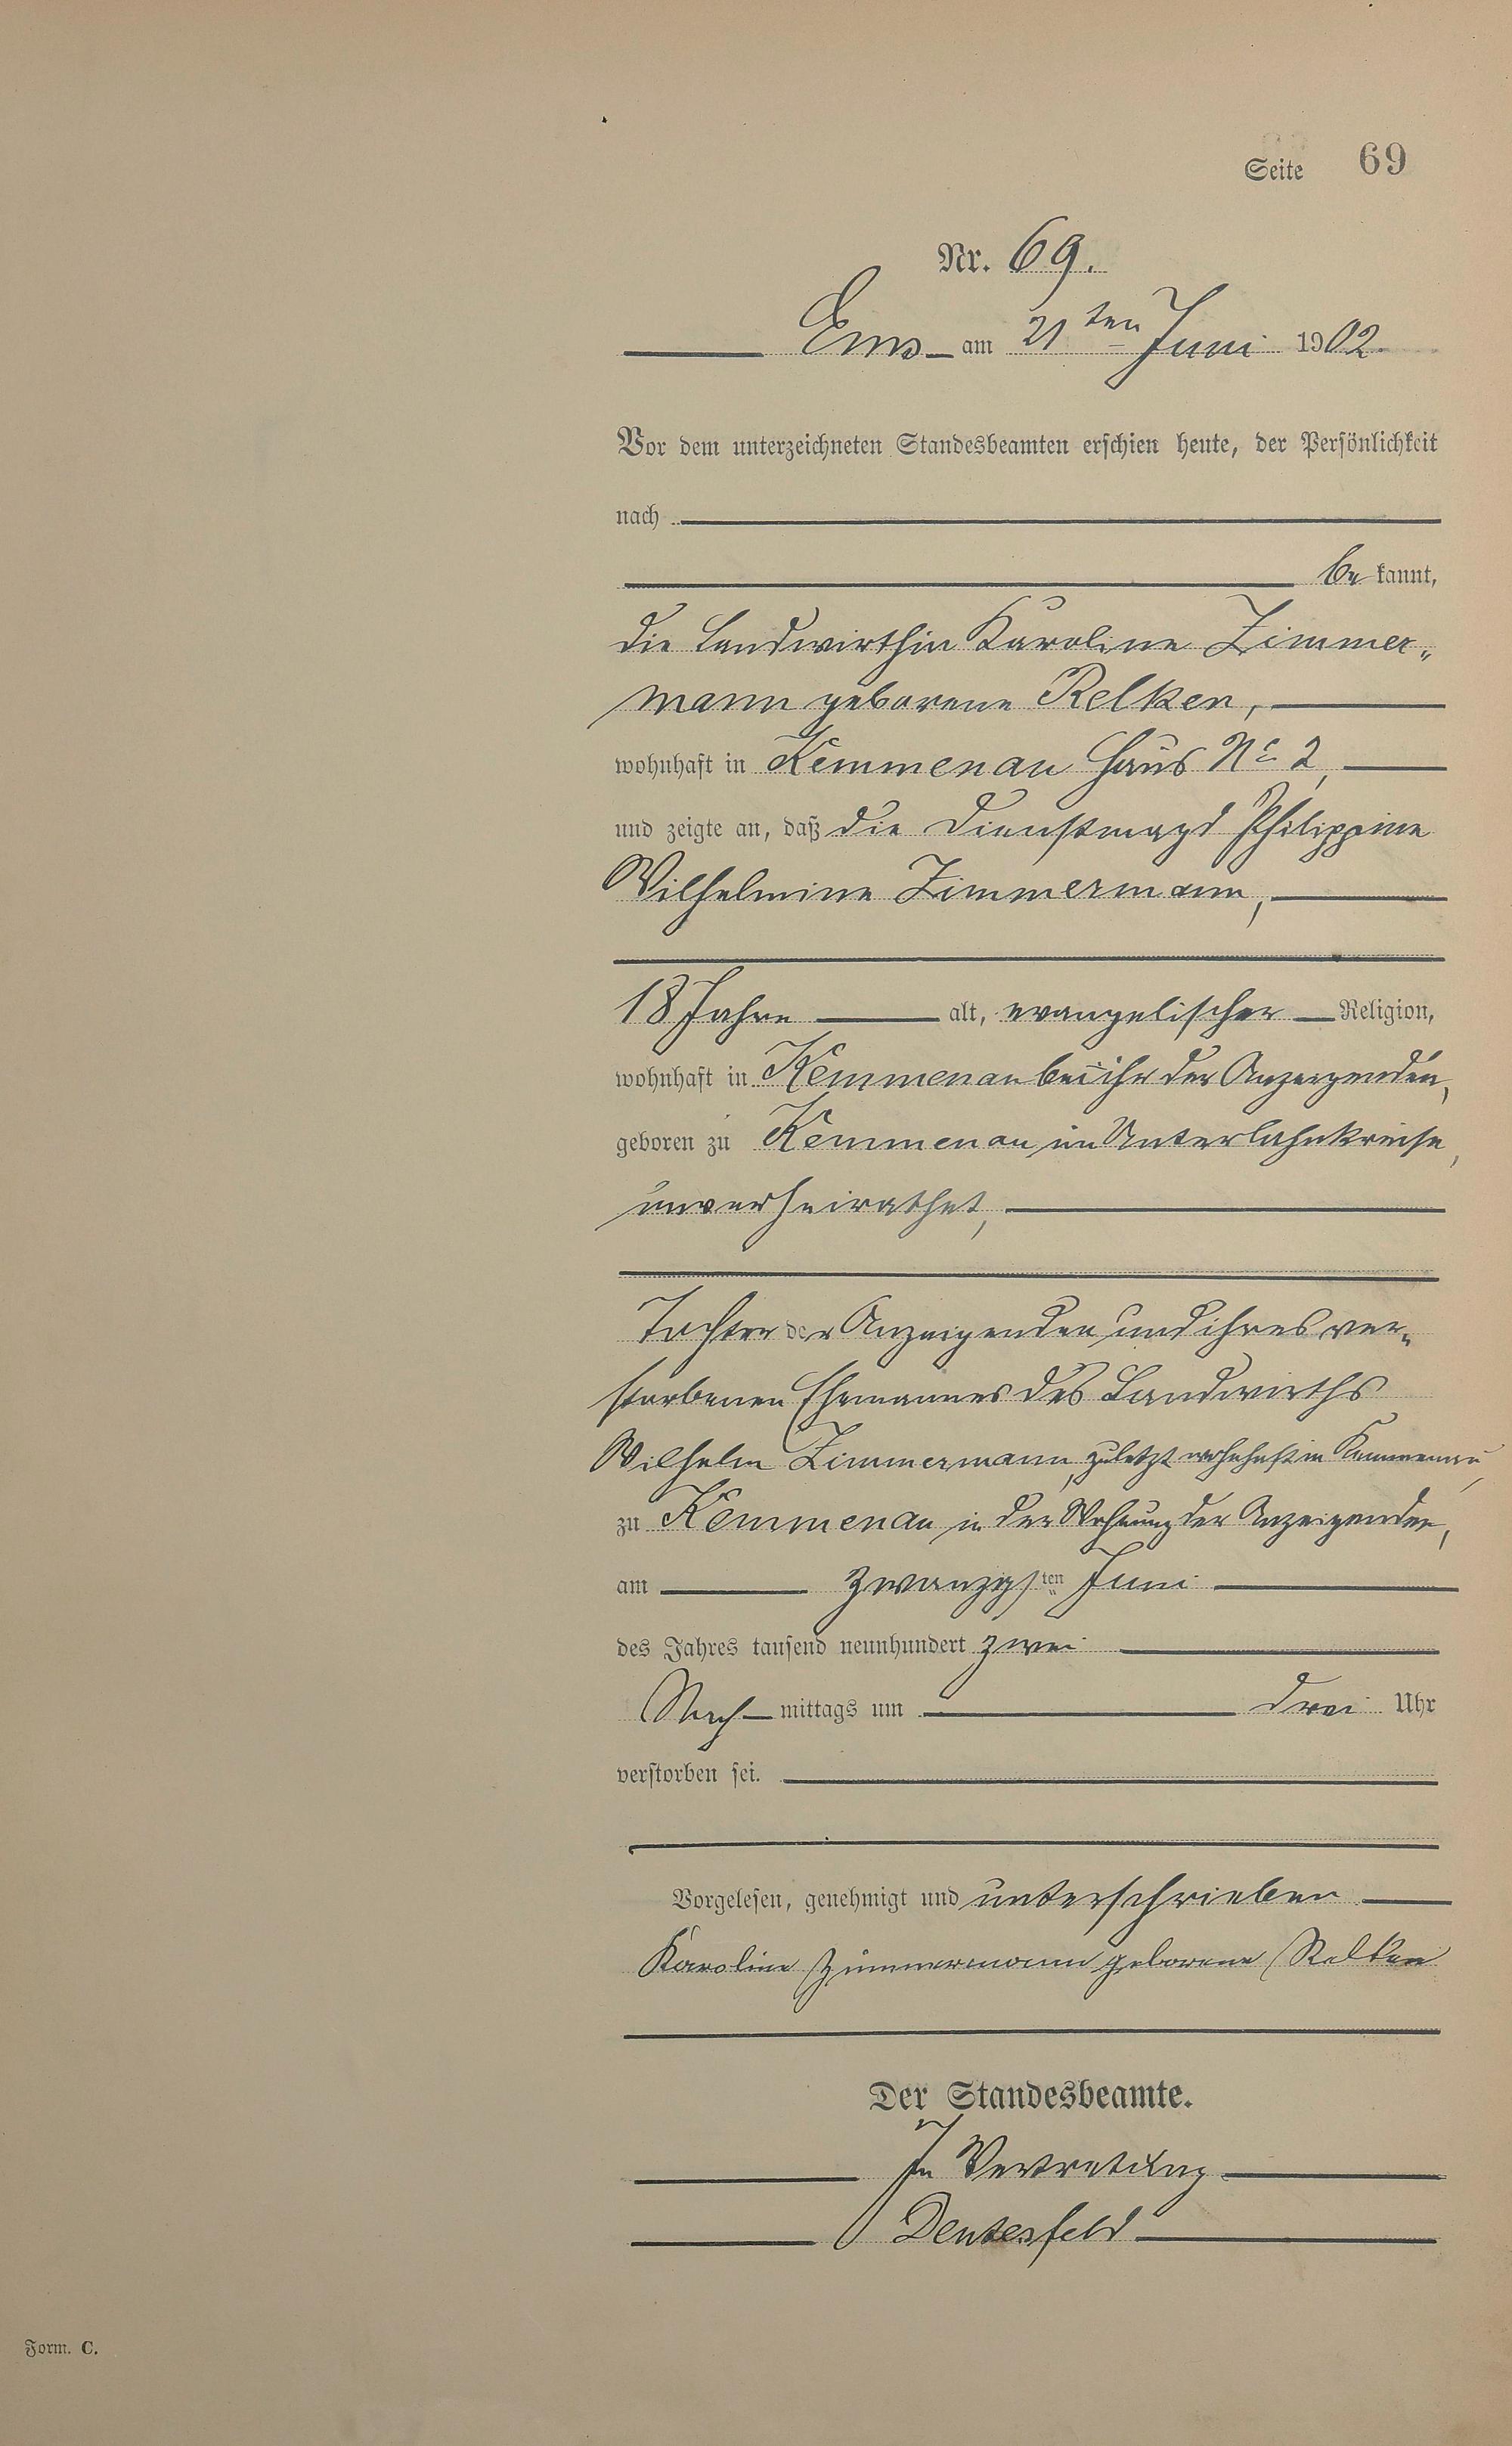 Seite 69
Nr. 69.
Ems am 21ten Juni 1902
Vor dem unterzeichneten Standesbeamten erschien heute, der Persönlichkeit
nach
be kannt,
die Landwirthin Karoline Zimmer„
mann geborene Relken,
wohnhaft in Kemmenau Haus No 2,
und zeigte an, daß die Dienstmagd Philippine
Wilhelmine Zimmermann,
18 Jahre alt, evangelischer Religion,
wohnhaft in Kemmenau bei ihr der Anzeigenden,
geboren zu Kemmenau im Unterlahnkreise,
unverheirathet,
Tochter der Anzeigenden und ihres ver„
storbenen Ehemannes des Landwirths
Wilhelm Zimmermann, zuletzt wohnhaft in Kemmenau,
zu Kemmenau in der Wohnung der Anzeigenden,
am zwanzigsten Juni
des Jahres tausend neunhundert zwei
Nach mittags um drei Uhr
verstorben sei.
Vorgelesen, genehmigt und unterschrieben
Karoline Zimmermann geborene Relken
Der Standesbeamte.
In Vertretung
Deutesfeld
Form. C.